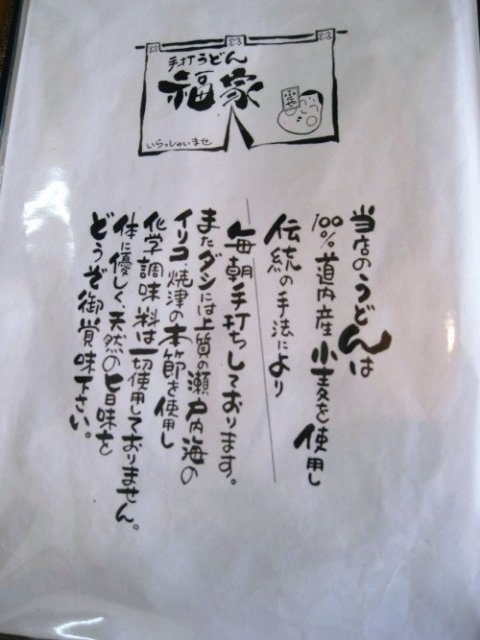 手打うどん
福家
ふくや
いらっしゃいませ
当店のうどんは
100%道内産小麦を使用し
伝統の手法により
毎朝手打ちしております。
またダシには上質の瀬戸内海の
イリコ、焼津の本節を使用し
化学調味料は一切使用しておりません。
体に優しく、天然の旨味を
どうぞ御賞味下さい。